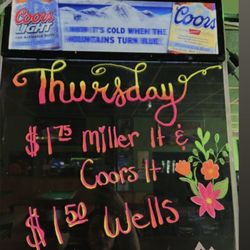 Coors
LIGHT
IT'S COLD WHEN THE
MOUNTAINS TURN BLUE
Coors
Thursday
$1.75 Miller lt &
Coors lt
$1.50 Wells